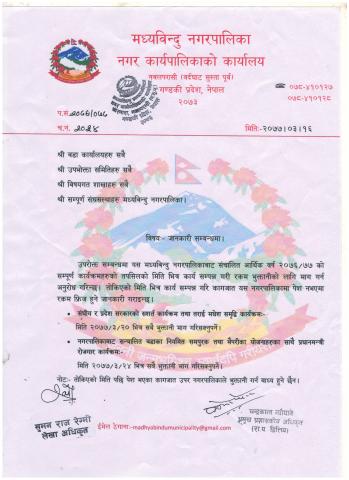 मध्यविन्दु नगरपालिका
नगर कार्यपालिकाको कार्यालय
नवलपरासी (बर्दघाट सुस्ता पूर्व)
गण्डकी प्रदेश, नेपाल
२०७३
☎ ०७८-५१०१२७
०७८-५१०१२८
प.सं. २०७६/०७७
च.नं. २०२४
मिति:-२०७७।०३।१६
श्री वडा कार्यालयहरु सबै
श्री उपभोक्ता समितिहरु सबै
श्री विषयगत शाखाहरु सबै
श्री सम्पूर्ण संघसस्थाहरु मध्यविन्दु नगरपालिका।
विषय:- जानकारी सम्बन्धमा।
उपरोक्त सम्बन्धमा यस मध्यविन्दु नगरपालिकाबाट संचालित आर्थिक वर्ष २०७६/७७ को
सम्पूर्ण कार्यक्रमहरुको तपसिलको मिति भित्र कार्य सम्पन्न गरी रकम भुक्तानीको लागि माग गर्न
अनुरोध गरिन्छ। तोकिएको मिति भित्र कार्य सम्पन्न गरि कागजात यस नगरपालिकामा पेश नभएमा
रकम फ्रिज हुने जानकारी गराइन्छ।
• संघीय र प्रदेश सरकारको सशर्त कार्यक्रम तथा तराई मधेश समृद्धि कार्यक्रम:-
मिति २०७७/३/२० भित्र सबै भुक्तानी माग गरिसक्नुपर्ने।
• नगरपालिकाबाट सन्चालित वडाका नियमित समपुरक तथा भैपरीका योजनाहरुका साथै प्रधानमन्त्री
रोजगार कार्यक्रम:-
मिति २०७७/३/२४ भित्र सबै भुक्तानी माग गरिसक्नुपर्ने।
नोट:- तोकिएको मिति पछि पेश भएका कागजात उपर नगरपालिकाले भुक्तानी गर्न बाध्य हुने छैन।
सुमन राज रेग्मी
लेखा अधिकृत
ईमेल ठेगाना:-madhyabindumunicipality@gmail.com
प्रमुख प्रशासकीय अधिकृत
(रा.प. द्वितिय)